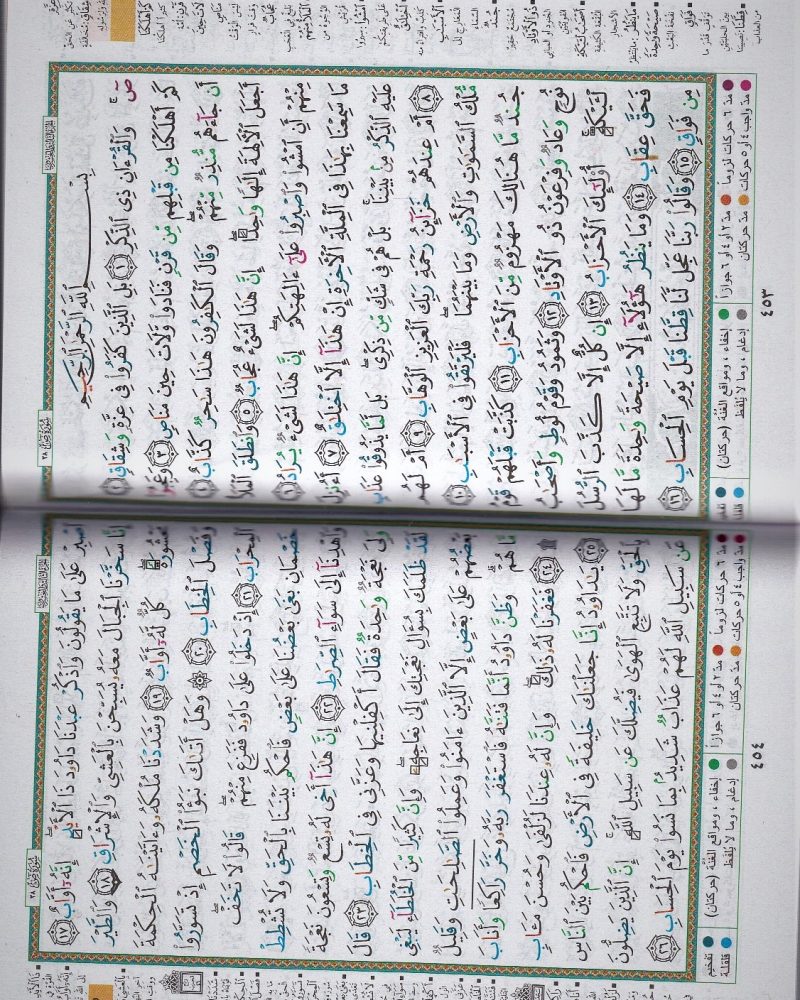 سُورَةُ صٓ ٣٨
بِسْمِ ٱللَّهِ ٱلرَّحْمَٰنِ ٱلرَّحِيمِ
صٓ ۚ وَٱلْقُرْءَانِ ذِى ٱلذِّكْرِ ١ بَلِ ٱلَّذِينَ كَفَرُوا۟ فِى عِزَّةٍ وَشِقَاقٍ ٢
كَمْ أَهْلَكْنَا مِن قَبْلِهِم مِّن قَرْنٍ فَنَادَوا۟ وَّلَاتَ حِينَ مَنَاصٍ ٣ وَعَجِبُوٓا۟
أَن جَآءَهُم مُّنذِرٌ مِّنْهُمْ ۖ وَقَالَ ٱلْكَٰفِرُونَ هَٰذَا سَٰحِرٌ كَذَّابٌ ٤
أَجَعَلَ ٱلْءَالِهَةَ إِلَٰهًا وَٰحِدًا ۖ إِنَّ هَٰذَا لَشَىْءٌ عُجَابٌ ٥ وَٱنطَلَقَ ٱلْمَلَأُ
مِنْهُمْ أَنِ ٱمْشُوا۟ وَٱصْبِرُوا۟ عَلَىٰٓ ءَالِهَتِكُمْ ۖ إِنَّ هَٰذَا لَشَىْءٌ يُرَادُ ٦
مَا سَمِعْنَا بِهَٰذَا فِى ٱلْمِلَّةِ ٱلْءَاخِرَةِ إِنْ هَٰذَآ إِلَّا ٱخْتِلَٰقٌ ٧ أَءُنزِلَ
عَلَيْهِ ٱلذِّكْرُ مِنۢ بَيْنِنَا ۚ بَلْ هُمْ فِى شَكٍّ مِّن ذِكْرِى ۖ بَل لَّمَّا يَذُوقُوا۟ عَذَابِ
٨ أَمْ عِندَهُمْ خَزَآئِنُ رَحْمَةِ رَبِّكَ ٱلْعَزِيزِ ٱلْوَهَّابِ ٩ أَمْ لَهُم
مُّلْكُ ٱلسَّمَٰوَٰتِ وَٱلْأَرْضِ وَمَا بَيْنَهُمَا ۖ فَلْيَرْتَقُوا۟ فِى ٱلْأَسْبَٰبِ ١٠
جُندٌ مَّا هُنَالِكَ مَهْزُومٌ مِّنَ ٱلْأَحْزَابِ ١١ كَذَّبَتْ قَبْلَهُمْ قَوْمُ
نُوحٍ وَعَادٌ وَفِرْعَوْنُ ذُو ٱلْأَوْتَادِ ١٢ وَثَمُودُ وَقَوْمُ لُوطٍ وَأَصْحَٰبُ
لْـَٔيْكَةِ ۚ أُو۟لَٰٓئِكَ ٱلْأَحْزَابُ ١٣ إِن كُلٌّ إِلَّا كَذَّبَ ٱلرُّسُلَ
فَحَقَّ عِقَابِ ١٤ وَمَا يَنظُرُ هَٰٓؤُلَآءِ إِلَّا صَيْحَةً وَٰحِدَةً مَّا لَهَا
مِن فَوَاقٍ ١٥ وَقَالُوا۟ رَبَّنَا عَجِّل لَّنَا قِطَّنَا قَبْلَ يَوْمِ ٱلْحِسَابِ ١٦
مدّ ٦ حركات لزوماً مدّ ٢ أو ٤ أو ٦ جوازاً إخفاء، ومواقع الغُنَّة (حركتان) تفخيم
مدّ واجب ٤ أو ٥ حركات مدّ حركتان إدغام، وما لا يُلفظ قلقلة
٤٥٣
سُورَةُ صٓ ٣٨
ٱصْبِرْ عَلَىٰ مَا يَقُولُونَ وَٱذْكُرْ عَبْدَنَا دَاوُۥدَ ذَا ٱلْأَيْدِ ۖ إِنَّهُۥٓ أَوَّابٌ ١٧
إِنَّا سَخَّرْنَا ٱلْجِبَالَ مَعَهُۥ يُسَبِّحْنَ بِٱلْعَشِىِّ وَٱلْإِشْرَاقِ ١٨ وَٱلطَّيْرَ
مَحْشُورَةً ۖ كُلٌّ لَّهُۥٓ أَوَّابٌ ١٩ وَشَدَدْنَا مُلْكَهُۥ وَءَاتَيْنَٰهُ ٱلْحِكْمَةَ
وَفَصْلَ ٱلْخِطَابِ ٢٠ ۞ وَهَلْ أَتَىٰكَ نَبَؤُا۟ ٱلْخَصْمِ إِذْ تَسَوَّرُوا۟
ٱلْمِحْرَابَ ٢١ إِذْ دَخَلُوا۟ عَلَىٰ دَاوُۥدَ فَفَزِعَ مِنْهُمْ ۖ قَالُوا۟ لَا تَخَفْ ۖ
خَصْمَانِ بَغَىٰ بَعْضُنَا عَلَىٰ بَعْضٍ فَٱحْكُم بَيْنَنَا بِٱلْحَقِّ وَلَا تُشْطِطْ
وَٱهْدِنَآ إِلَىٰ سَوَآءِ ٱلصِّرَٰطِ ٢٢ إِنَّ هَٰذَآ أَخِى لَهُۥ تِسْعٌ وَتِسْعُونَ نَعْجَةً
وَلِىَ نَعْجَةٌ وَٰحِدَةٌ فَقَالَ أَكْفِلْنِيهَا وَعَزَّنِى فِى ٱلْخِطَابِ ٢٣ قَالَ
لَقَدْ ظَلَمَكَ بِسُؤَالِ نَعْجَتِكَ إِلَىٰ نِعَاجِهِۦ ۖ وَإِنَّ كَثِيرًا مِّنَ ٱلْخُلَطَآءِ لَيَبْغِى
بَعْضُهُمْ عَلَىٰ بَعْضٍ إِلَّا ٱلَّذِينَ ءَامَنُوا۟ وَعَمِلُوا۟ ٱلصَّٰلِحَٰتِ وَقَلِيلٌ
مَّا هُمْ ۗ وَظَنَّ دَاوُۥدُ أَنَّمَا فَتَنَّٰهُ فَٱسْتَغْفَرَ رَبَّهُۥ وَخَرَّ رَاكِعًا وَأَنَابَ
۩ ٢٤ فَغَفَرْنَا لَهُۥ ذَٰلِكَ ۖ وَإِنَّ لَهُۥ عِندَنَا لَزُلْفَىٰ وَحُسْنَ مَـَٔابٍ
٢٥ يَٰدَاوُۥدُ إِنَّا جَعَلْنَٰكَ خَلِيفَةً فِى ٱلْأَرْضِ فَٱحْكُم بَيْنَ ٱلنَّاسِ
بِٱلْحَقِّ وَلَا تَتَّبِعِ ٱلْهَوَىٰ فَيُضِلَّكَ عَن سَبِيلِ ٱللَّهِ ۚ إِنَّ ٱلَّذِينَ يَضِلُّونَ
عَن سَبِيلِ ٱللَّهِ لَهُمْ عَذَابٌ شَدِيدٌۢ بِمَا نَسُوا۟ يَوْمَ ٱلْحِسَابِ ٢٦
مدّ ٦ حركات لزوماً مدّ ٢ أو ٤ أو ٦ جوازاً إخفاء، ومواقع الغُنَّة (حركتان) تفخيم
مدّ واجب ٤ أو ٥ حركات مدّ حركتان إدغام، وما لا يُلفظ قلقلة
٤٥٤